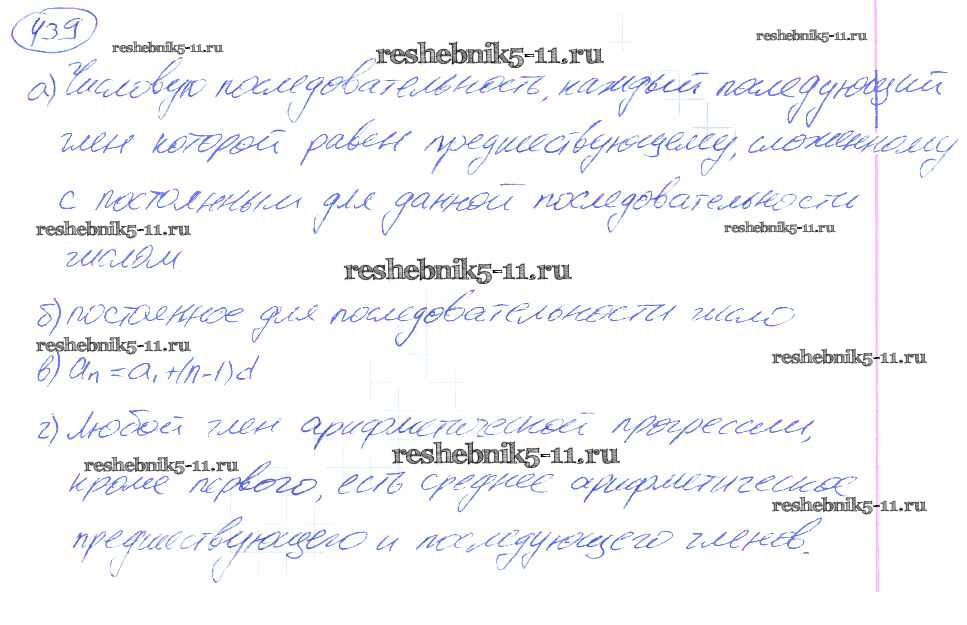 439
reshebnik5-11.ru
reshebnik5-11.ru
reshebnik5-11.ru
а) Числовую последовательность, каждый последующий
член которой равен предшествующему, сложенному
с постоянным для данной последовательности
reshebnik5-11.ru
reshebnik5-11.ru
числом
reshebnik5-11.ru
б) постоянное для последовательности число
reshebnik5-11.ru
reshebnik5-11.ru
в) aₙ = a₁ + (n-1)d
г) Любой член арифметической прогрессии,
reshebnik5-11.ru
reshebnik5-11.ru
кроме первого, есть среднее арифметическое
reshebnik5-11.ru
предшествующего и последующего членов.